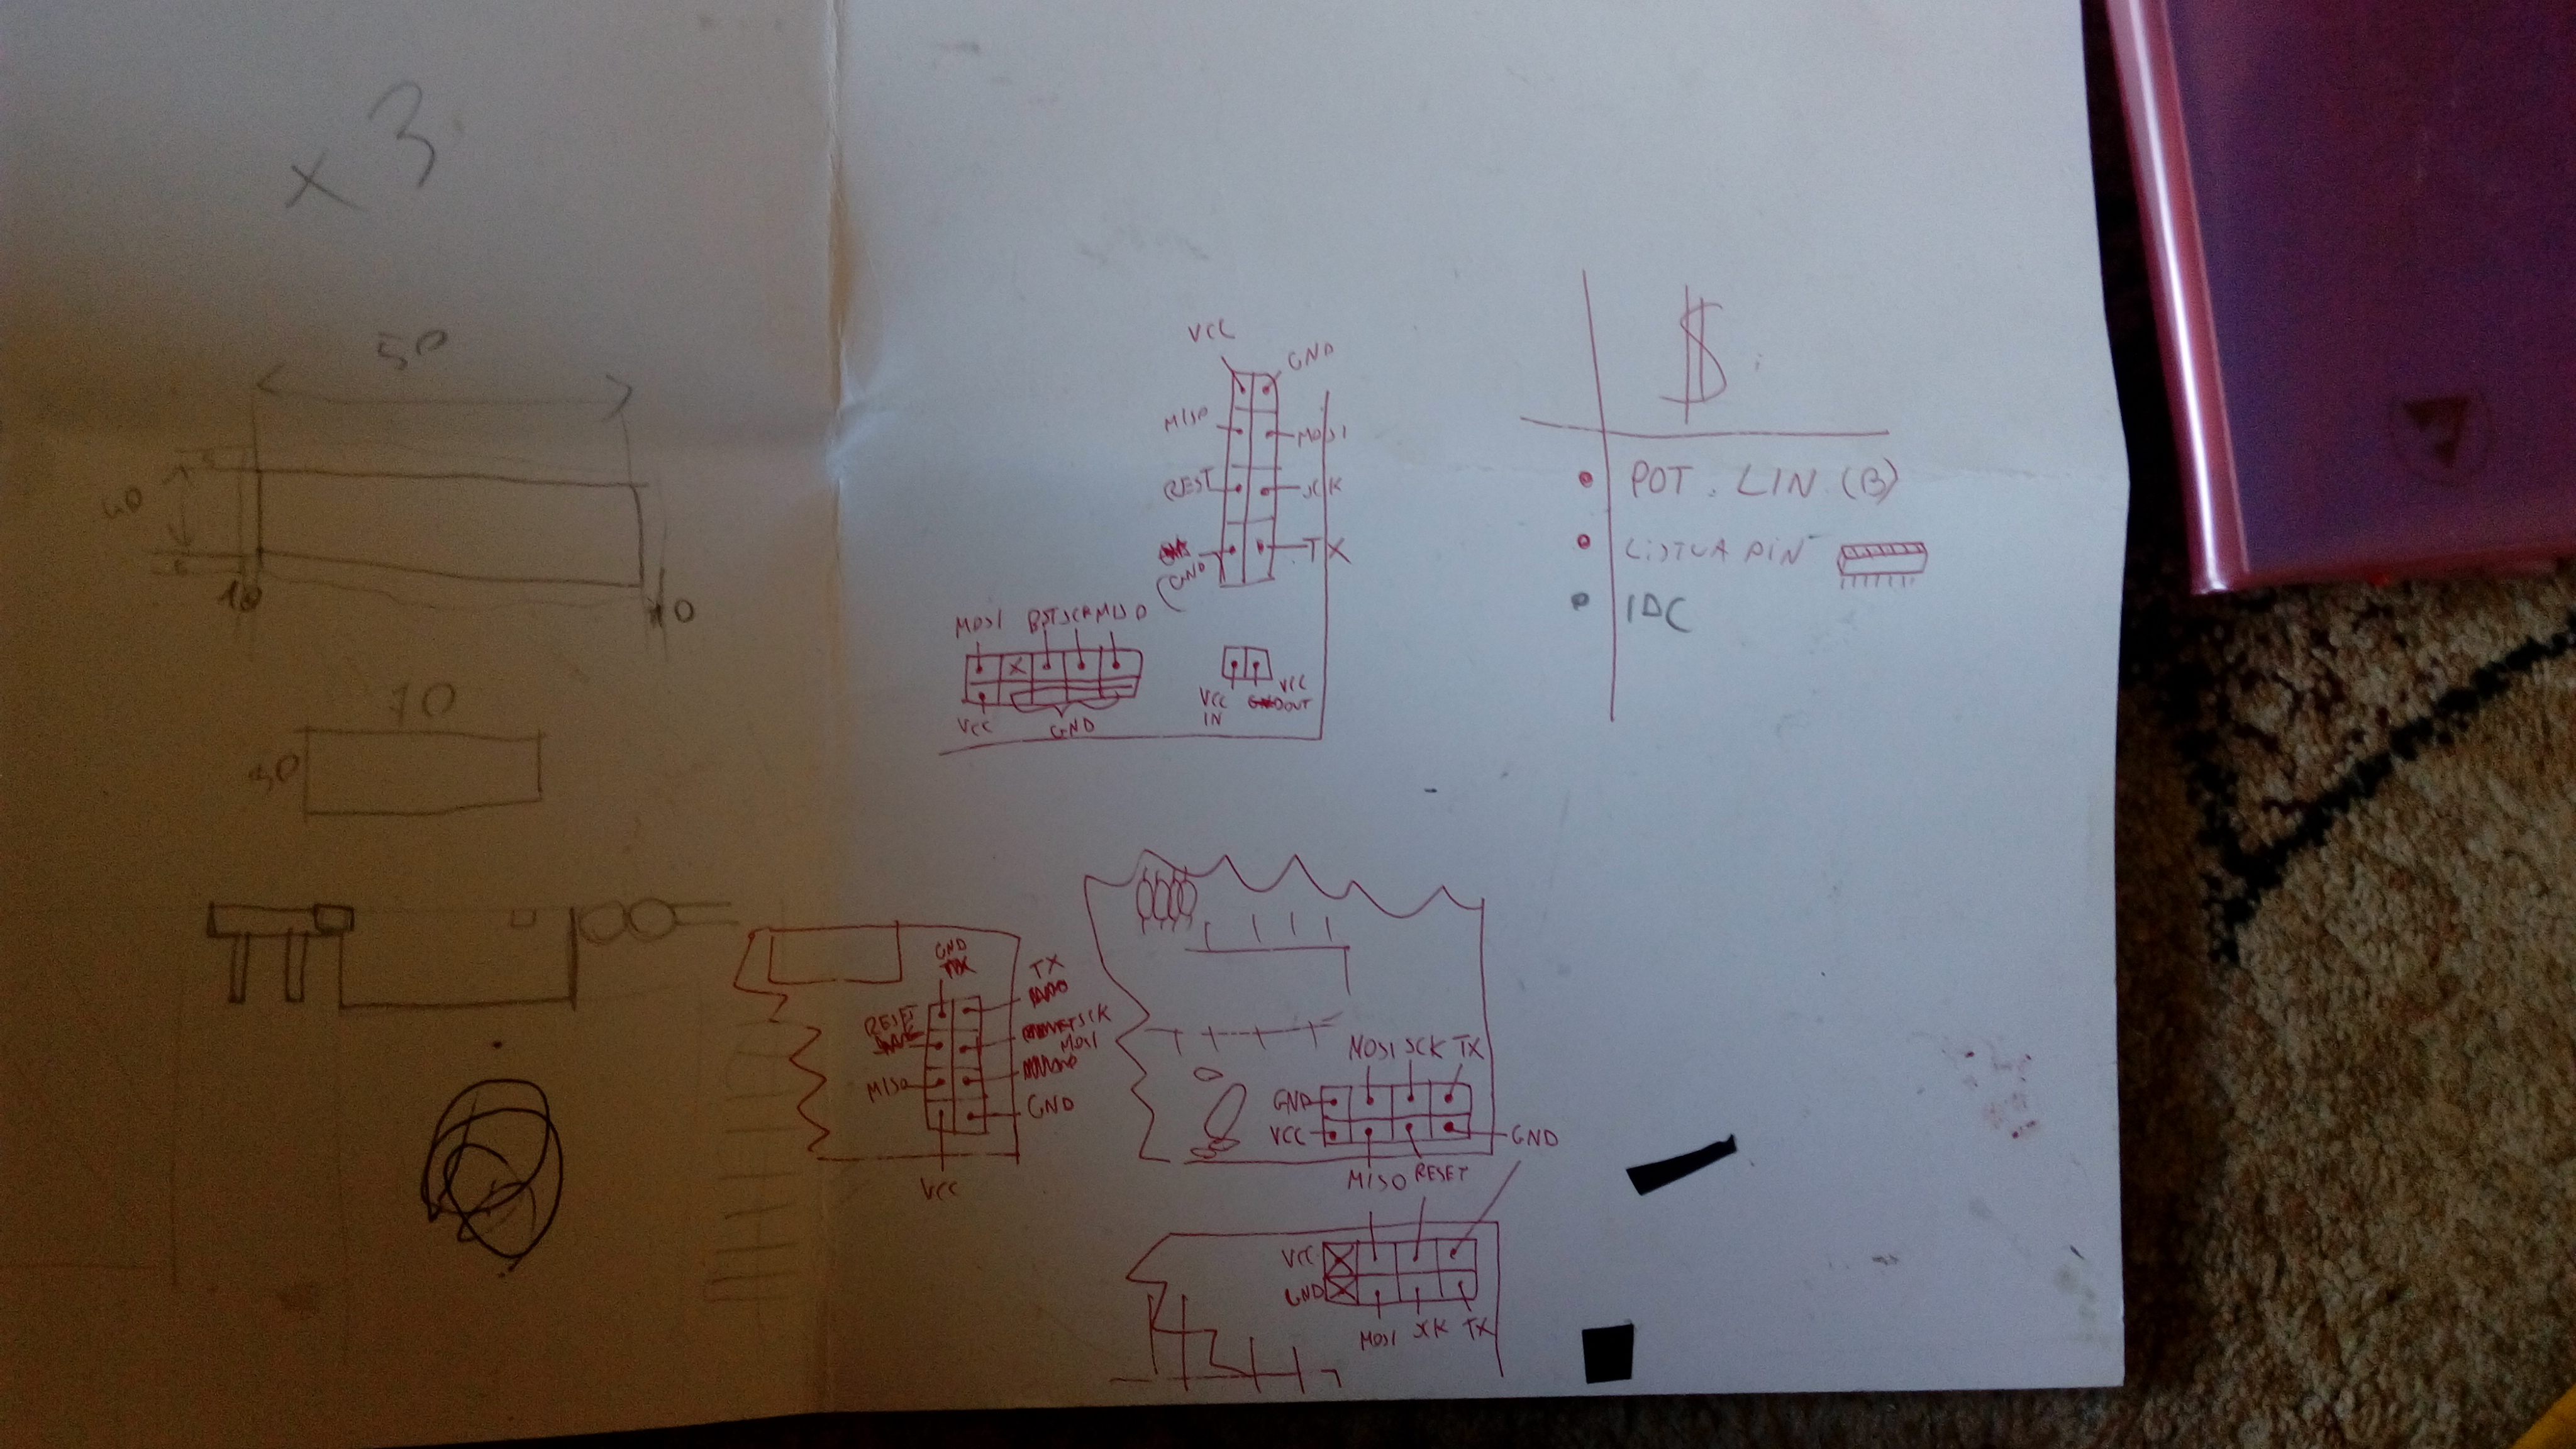 x3
50
40
5
5
10
10
70
30
VCC
GND
MISO
MOSI
REST
SCK
GND
TX
MOSI RST SCK MISO
X
VCC
GND
VCC IN
VCC OUT
$
POT. LIN. (B)
LISTWA PIN
IDC
GND
TX
RESET
SCK
MOSI
MISO
GND
VCC
MOSI SCK TX
GND
VCC
GND
MISO RESET
VCC
GND
MOSI SCK TX